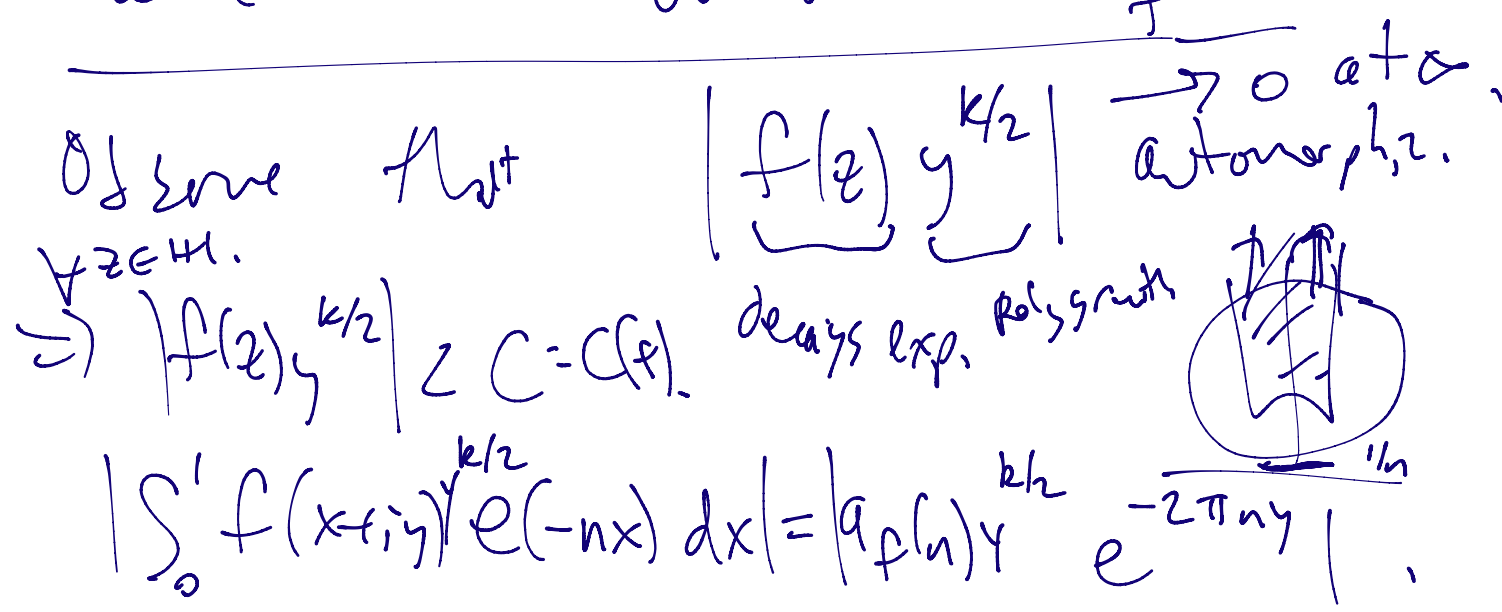 Observe that |f(z) y^{k/2}| → 0 at ∞, automorphic.
∀ z ∈ ℍ.
⇒ |f(z) y^{k/2}| < C = C(f). decays exp. poly growth
|∫_0^1 f(x+iy) y^{k/2} e(-nx) dx| = |a_f(n) y^{k/2} e^{-2πny}|.
1/n